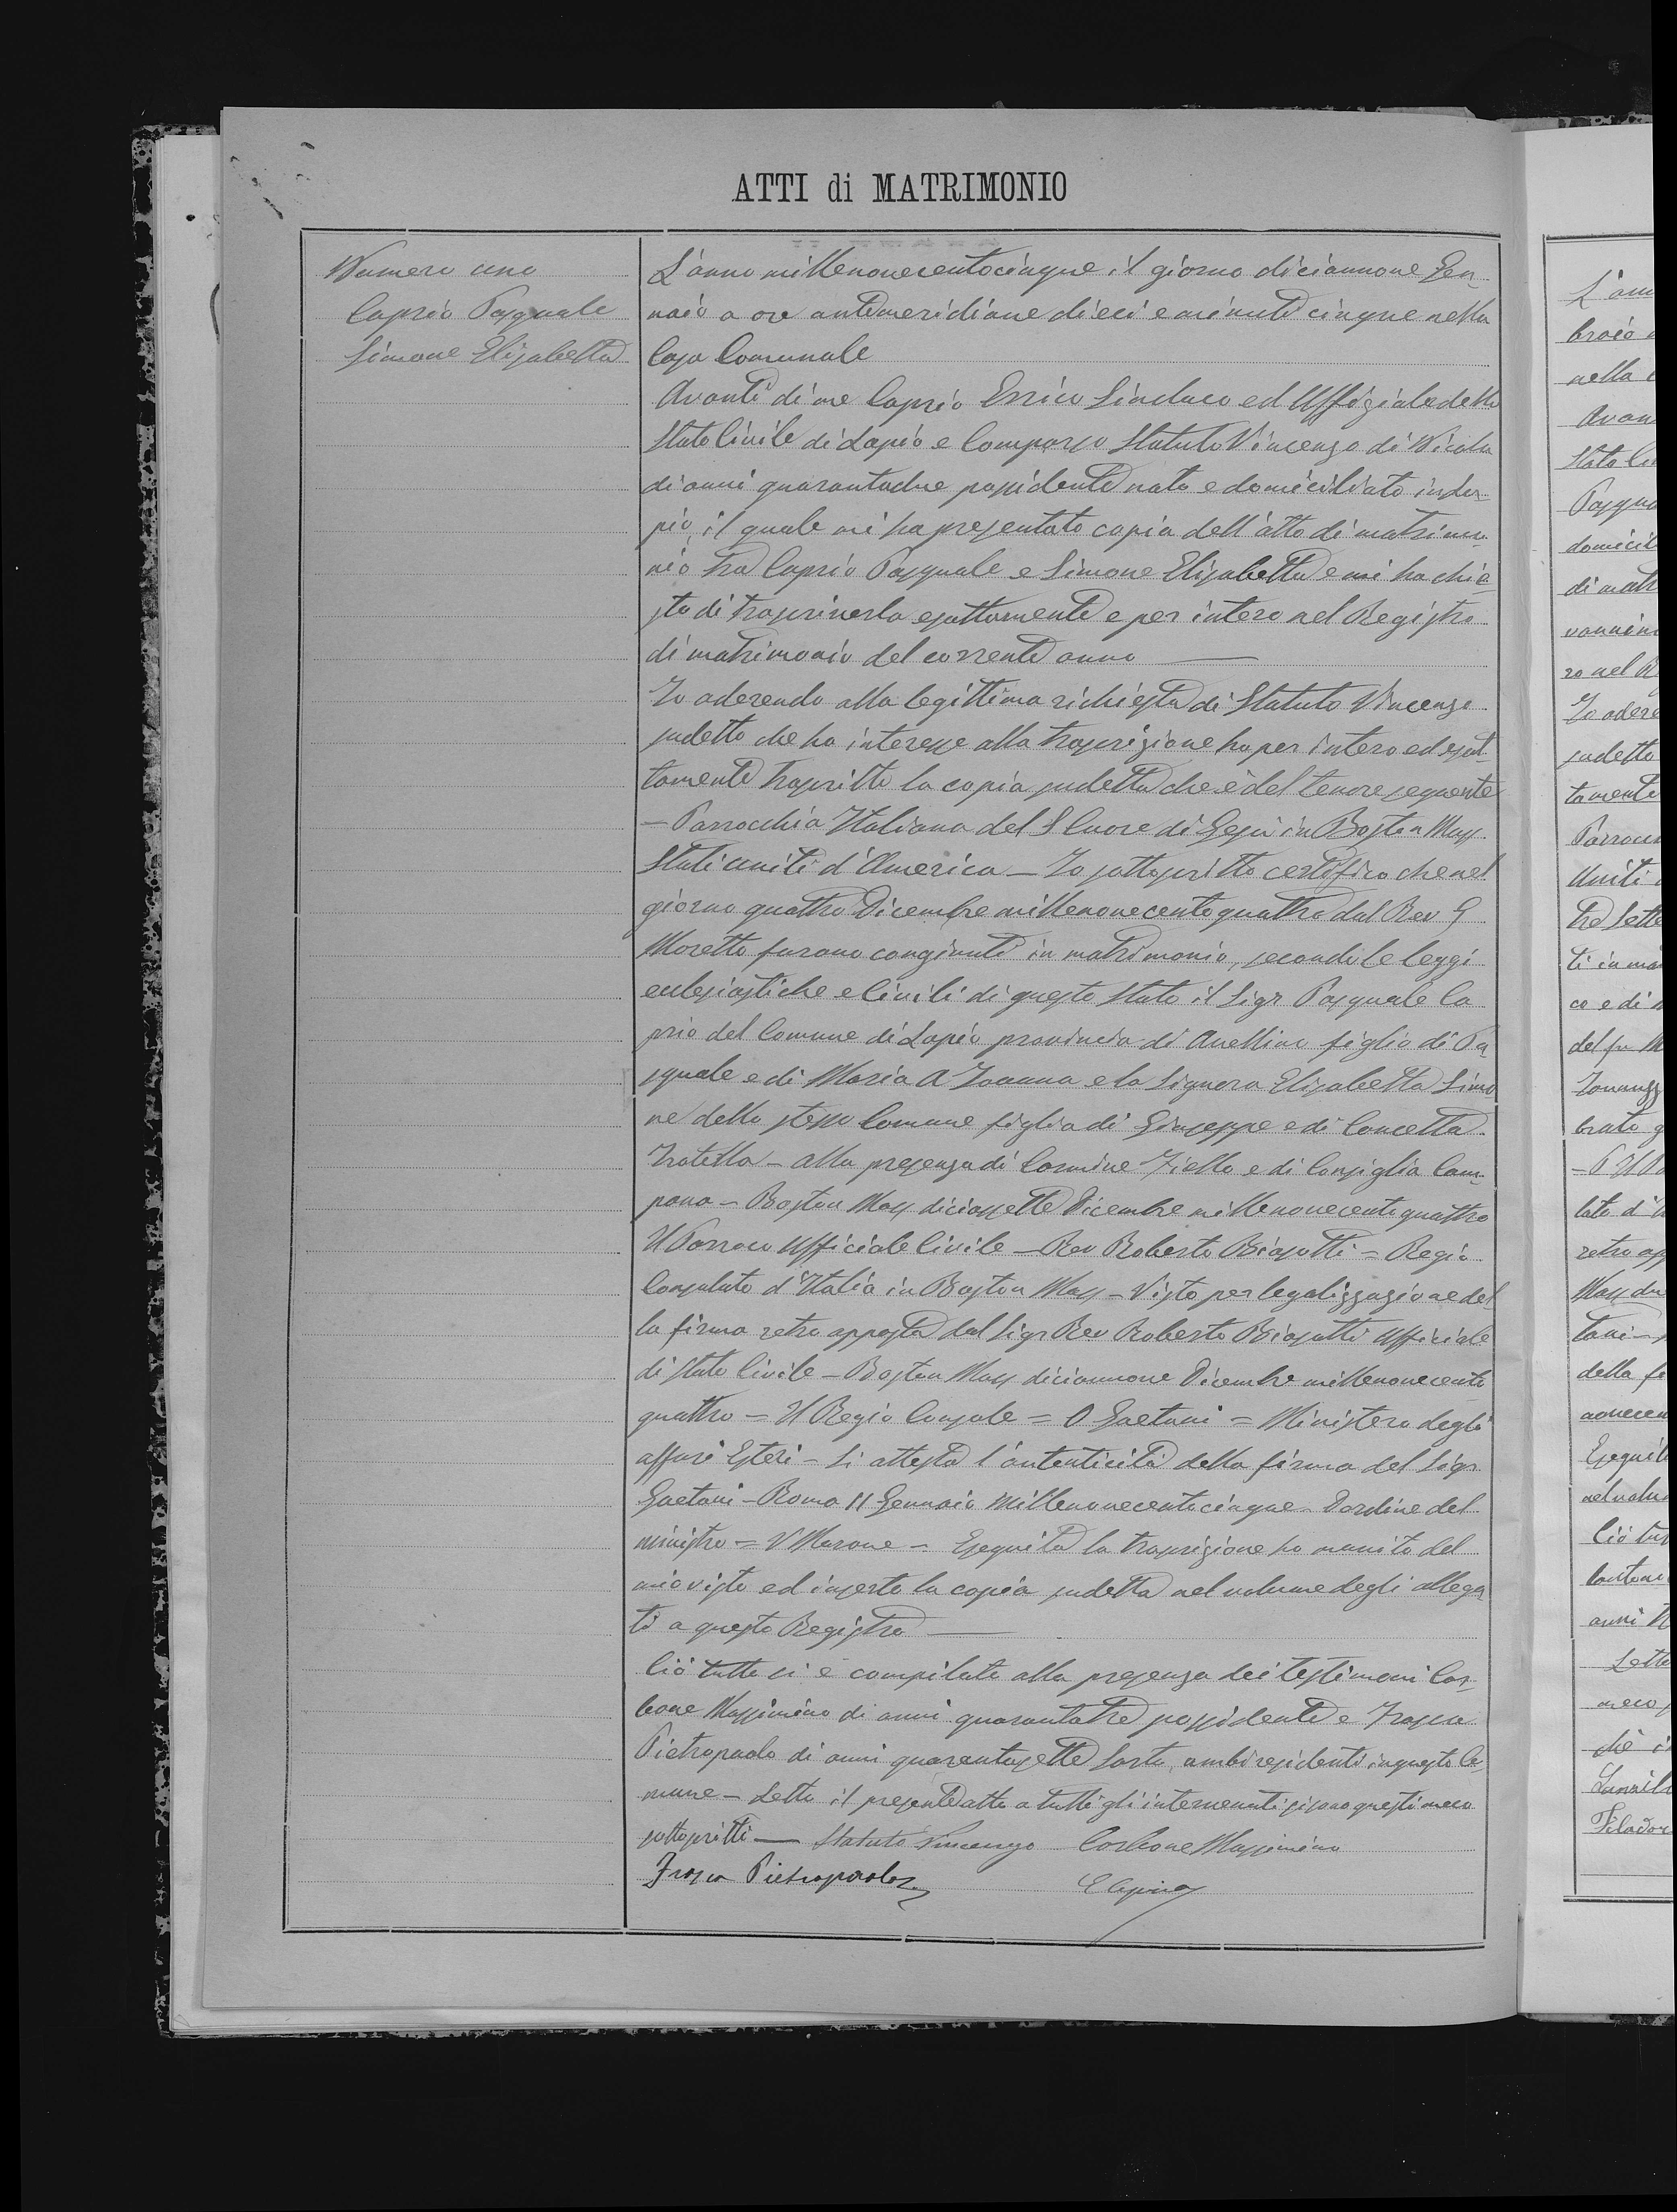 ATTI di MATRIMONIO
Numero uno
Caprio Pasquale
Simone Elisabetta
L'anno millenovecentocinque il giorno diciannove Gen-
naio a ore antimeridiane dieci e minuti cinque nella
Casa Comunale
Avanti di me Caprio Errico Sindaco ed Uffiziale dello
Stato Civile di Lapio e Comparso Statuto Vincenzo di Nicola
di anni quarantadue possidente nato e domiciliato in La-
pio, il quale mi ha presentato copia dell'atto di matrimo-
nio tra Caprio Pasquale e Simone Elisabetta e mi ha chie-
sto di trascriverla esattamente e per intero nel Registro
di matrimonio del corrente anno
Io aderendo alla legittima richiesta di Statuto Vincenzo
sudetto che ha interesse alla trascrizione ho per intero ed esat-
tamente trascritto la copia sudetta che è del tenore seguente
- Parrocchia Italiana del S Cuore di Gesù in Boston Mass.
Stati uniti d'America - Io sottoscritto certifico che nel
giorno quattro Dicembre millenovecentoquattro dal Rev G
Moretto furono congiunti in matrimonio, secondo le leggi
ecclesiastiche e Civili di questo Stato il Sigr Pasquale Ca
prio del Comune di Lapio provincia di Avellino figlio di Pa
squale e di Maria A Ioanna e la Signora Elisabetta Simo
ne dello stesso Comune figlia di Giuseppe e di Concetta
- alla presenza di Carmine e di Consiglia Cam-
pano - Boston Mass diciassette Dicembre millenovecentoquattro
Il Parroco Ufficiale Civile - Rev Roberto Biasotti = Regio
Consolato d'Italia in Boston Mass - Visto per legalizzazione del
la firma retro apposta dal Sigr Rev Roberto Biasotti Ufficiale
di Stato Civile - Boston Mass diciannove Dicembre millenovecento
quattro = Il Regio Console = O Gaetani = Ministero degli
affari Esteri - Si attesta l'autenticità della firma del Sigr
Gaetani - Roma 11 Gennaio Millenovecentocinque - D'ordine del
ministro = V Marone - Eseguita la trascrizione ho munito del
mio visto ed inserto la copia sudetta nel volume degli allega
ti a questo Registro
Ciò tutto si è compilato alla presenza dei testimoni Car-
bone Massimino di anni quarantatre possidente e Frasca
Pietropaolo di anni quarantasette Sarto, ambi residenti in questo Co-
mune - Letto il presente atto a tutti gli intervenuti si sono questi meco
sottoscritti - Statuto Vincenzo Carbone Massimino
Frasca Pietropaolo
E Caprio
L'ann
braio
nella
Avan
Stato Ci
Pasqua
domicil
di matr
ro nel R
Io adere
sudetto
tamente
Parrocc
Uniti
tre Sette
ti in ma
co e di
del fu M
brato
retro ap
Mass
tani
della fi
Eseguit
nel volu
Ciò tut
anni
Letto
meco